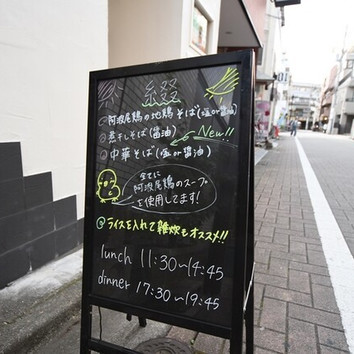 綴
◎阿波尾鶏の地鶏そば(塩or醤油)
◎煮干しそば(醤油)
New!!
◎中華そば(塩or醤油)
全てに
阿波尾鶏のスープ
を使用してます!
◎ライスを入れて雑炊もオススメ!!
lunch 11:30~14:45
dinner 17:30~19:45